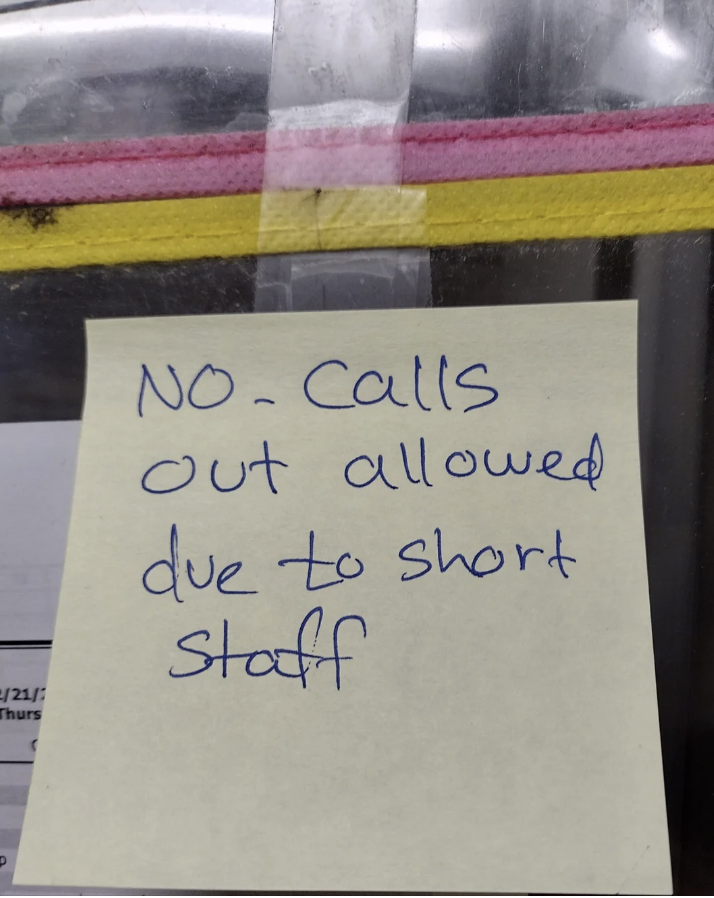 NO - Calls
out allowed
due to short
staff
/21/
Thurs